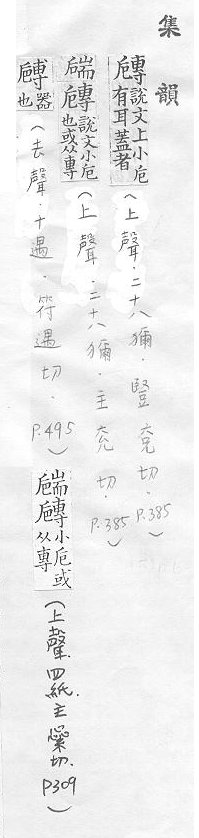 集韻
𡭐說文上小卮有耳蓋者(上聲.二十八獮.豎兗切.P.385)
𦓝𡭐說文小卮也或从專(上聲.二十八獮.主兗切.P.385)
器也(去聲.十遇.符遇切.P.495)
𦓝𡭐小卮或从專(上聲.四紙.主橤切.P309)